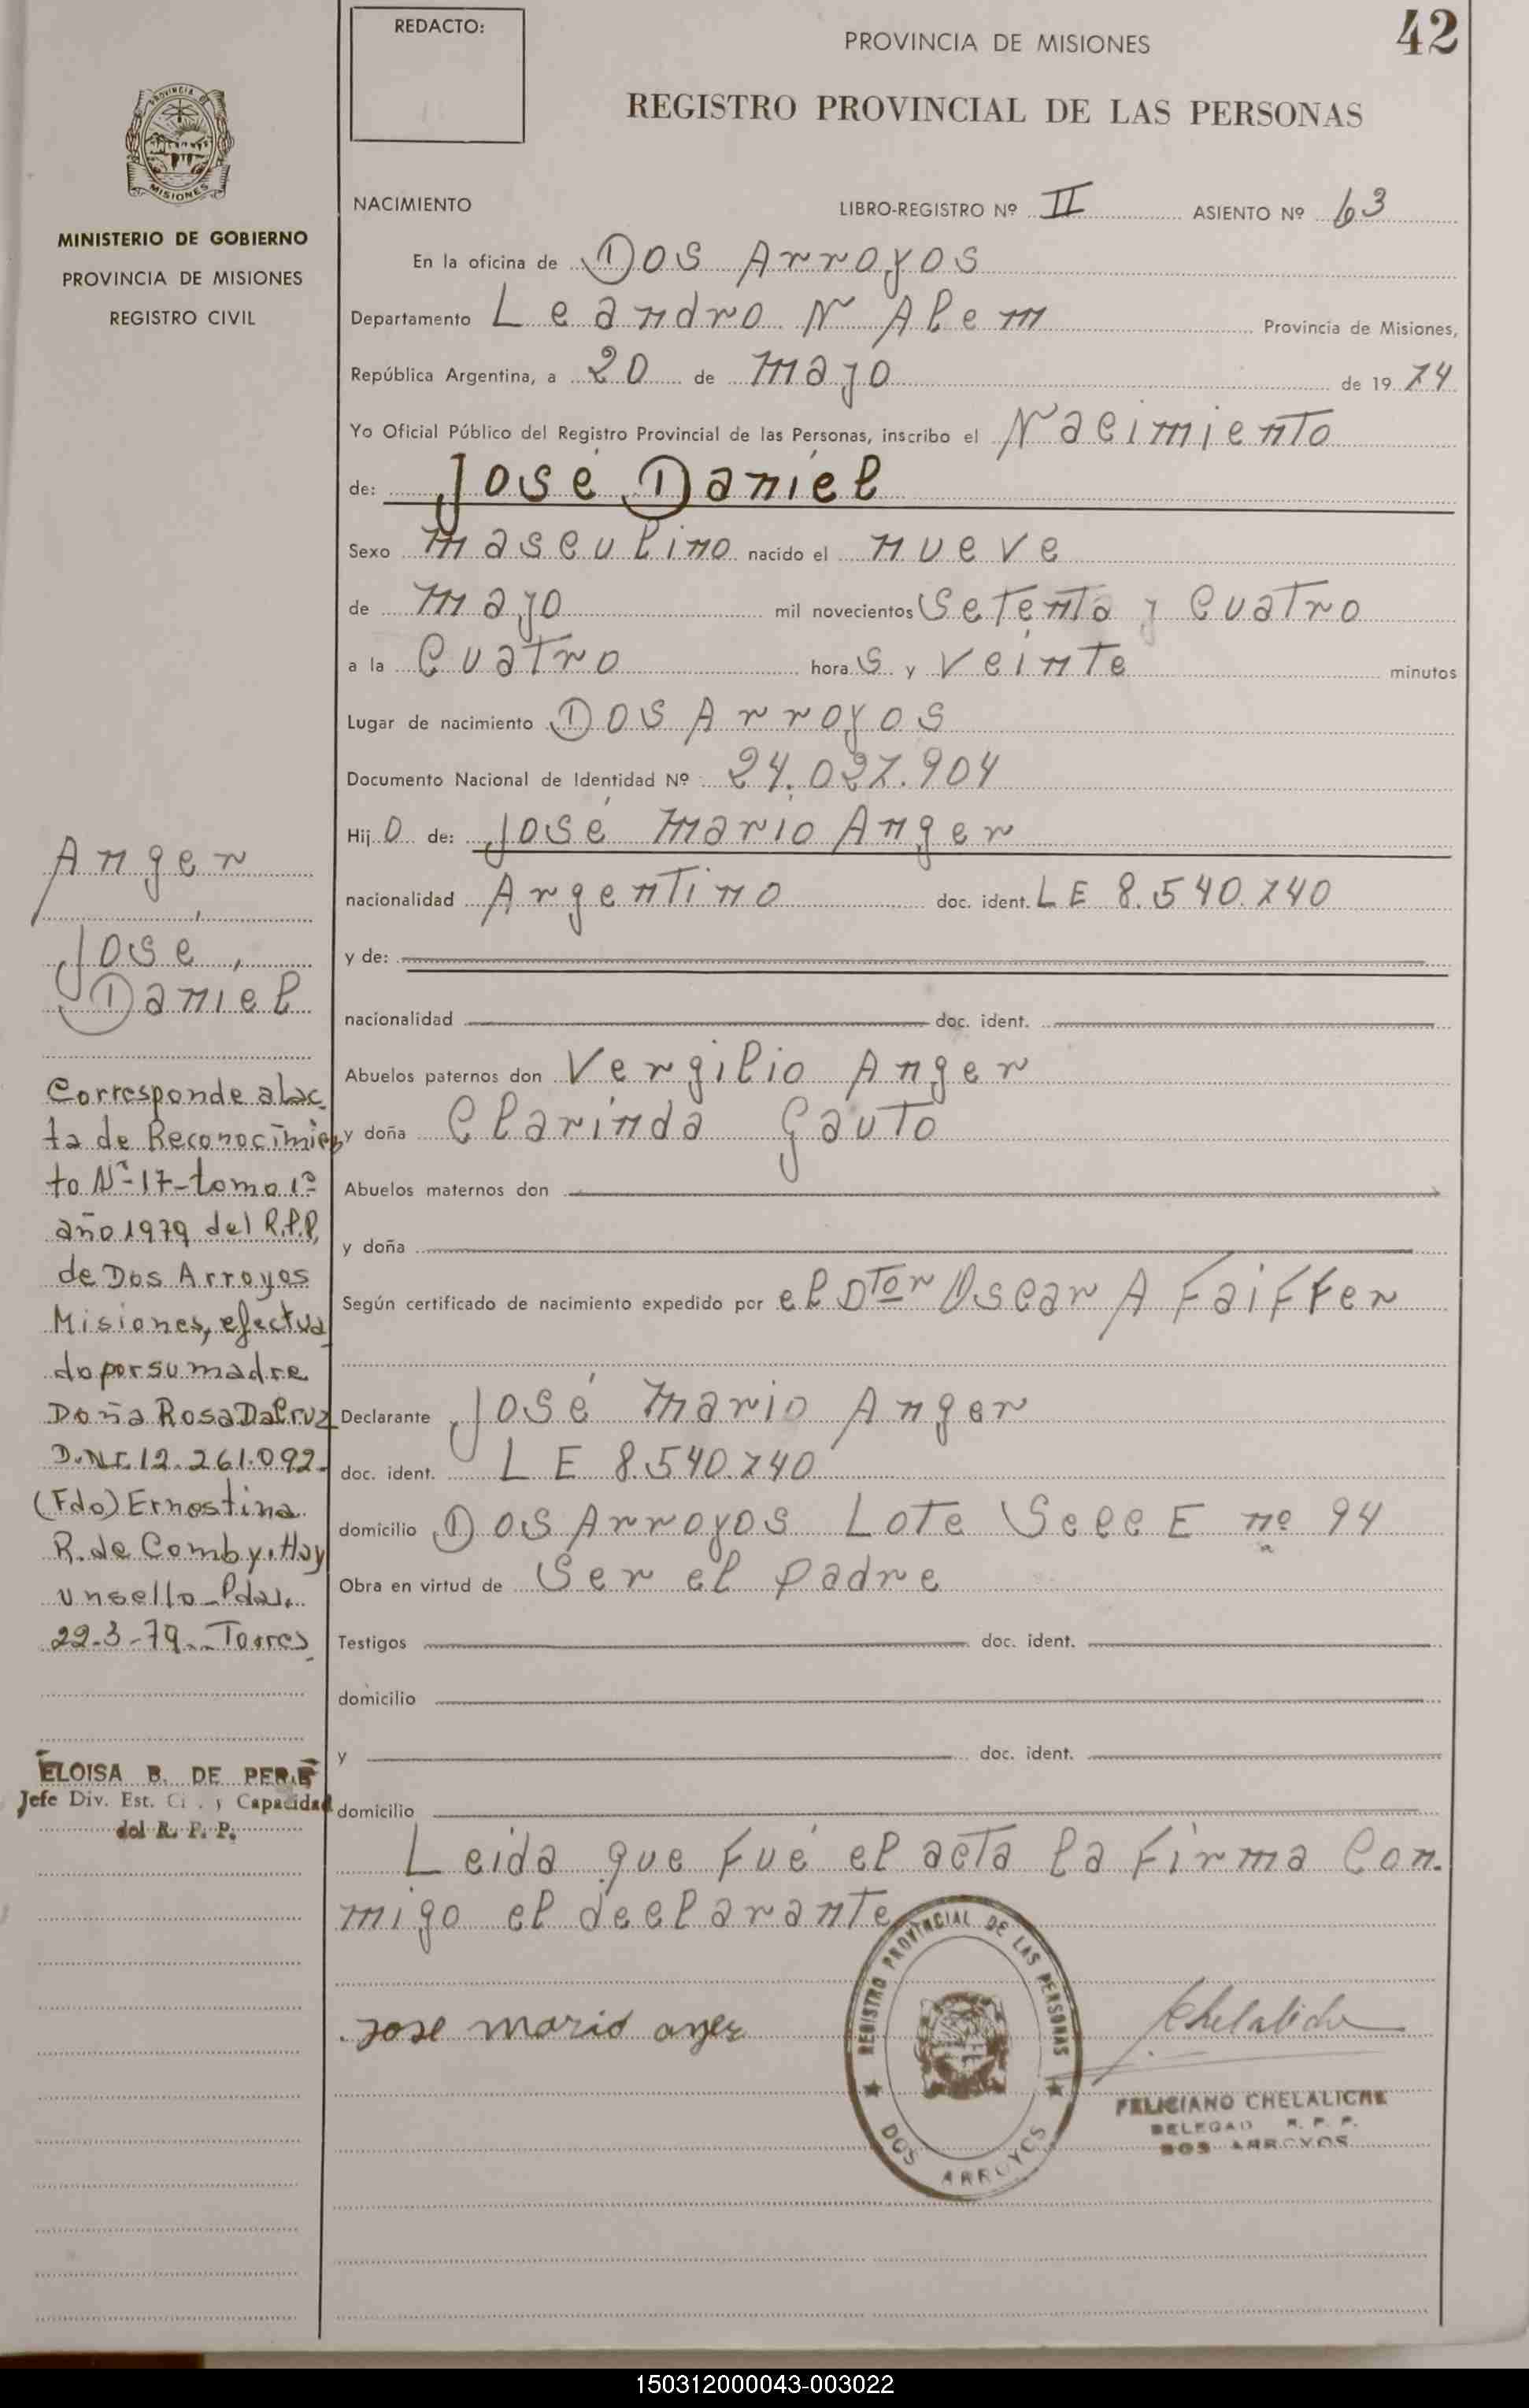 REDACTO:
PROVINCIA DE MISIONES
42
REGISTRO PROVINCIAL DE LAS PERSONAS
MISIONES
MINISTERIO DE GOBIERNO
PROVINCIA DE MISIONES
REGISTRO CIVIL
NACIMIENTO LIBRO-REGISTRO Nº II ASIENTO Nº 63
En la oficina de Dos Arroyos
Departamento Leandro N Alem Provincia de Misiones,
República Argentina, a 20 de mayo de 19 74
Yo Oficial Público del Registro Provincial de las Personas, inscribo el Nacimiento
de: José Daniel
Sexo masculino nacido el nueve
de mayo mil novecientos Setenta y Cuatro
a la Cuatro hora s y veinte minutos
Lugar de nacimiento Dos Arroyos
Documento Nacional de Identidad Nº 24.027.904
Hij o de: José mario Anger
nacionalidad Argentino doc. ident. LE 8.540.740
y de:
nacionalidad doc. ident.
Abuelos paternos don Vergilio Anger
y doña Clarinda Gauto
Abuelos maternos don
y doña
Según certificado de nacimiento expedido por el Dtor Oscar A Faiffer
Declarante José mario Anger
doc. ident. LE 8.540.740
domicilio Dos Arroyos Lote Secc E nº 94
Obra en virtud de Ser el padre
Testigos doc. ident.
domicilio
y doc. ident.
domicilio
Leida que fué el acta la firma Con.
migo el declarante
Anger
José,
Daniel
Corresponde alac
ta de Reconocimien
to Nº-17-tomo 1º
año 1979 del R.P.P,
de Dos Arroyos
Misiones, efectua
do por su madre
Doña Rosa DaCruz
D.N.I. 12.261.092.
(Fdo) Ernestina
R. de Comby. Hay
un sello-Pdas.
22-3-79.. Torres
ELOISA B. DE PERE
Jefe Div. Est. Ci . y Capacidad
del R. P. P.
jose mario anger
REGISTRO PROVINCIAL DE LAS PERSONAS
DOS ARROYOS
Chelaliche
FELICIANO CHELALICHE
DELEGADO R. P. P.
DOS ARROYOS
150312000043-003022